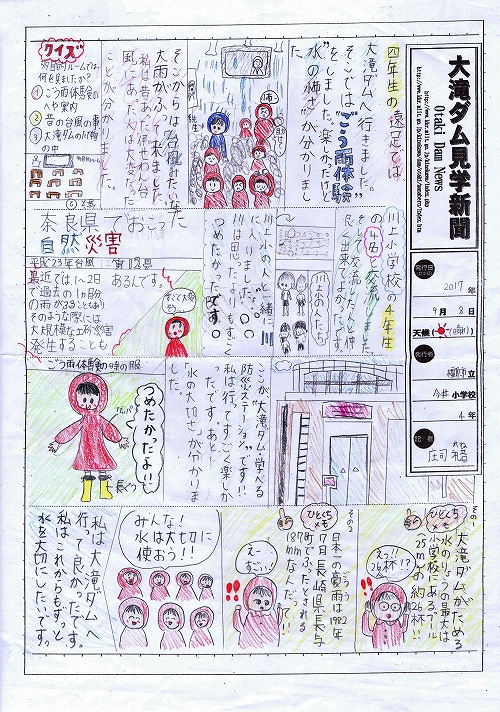 大滝ダム見学新聞
Otaki Dam News
発行日
2017年
9月8日
天候(晴れ)
発行者
橿原市立
今井小学校
4年
記者
庄司
四年生の遠足では、
大滝ダムへ行きました。
そこでは"ごう雨体験"
をしました。楽しかったけど
"水の怖さ"が分かりまし
た。
そこからは台風みたいな
大雨がふって来ました。
私は昔あった伊せわん台
風にあった人は大変だった
ことが分かりました。
クイズ
何を見ましたか?
①ごう雨体験の
へや案内
②昔の台風の事
③大滝ダムの
の中
川上小学校の4年生
の4名と交流しました。
そして交流した人と仲
良く出来てよかったです。
川上小の人たち
川上小の人と一緒に
に入りました。
川は思ったよりもすごく
つめたかったです。
奈良県でおこった
自然災害
平成23年台風第12号
最近では1〜2日
で過去の1か月分
の雨がふることもあり
そのような際には
大規模な土砂災害
が発生することも
あるんです。
ここが大滝ダム・学べる
防災ステーションです!!
私は行ってすごく楽しか
ったです。あと
"水の大切さ"が分かりま
した。
ごう雨体験の時の服
つめたかったよ!!
カッパ
長ぐつ
その1
ひとくちメモ
大滝ダムがためる
水のりょうの最大は
小学校にあるプール
25mの約26万杯!!
えっ!!
26万杯!?
その2
ひとくちメモ
日本一の豪雨は1982年
7月長崎県長与
町でふったとされる
187mmなんだって!!
えー
すごい!!
みんな!
水は大切に
使おう!!
私は、大滝ダムへ
行って良かったです。
私はこれからもずっと
水を大切にしたいです。